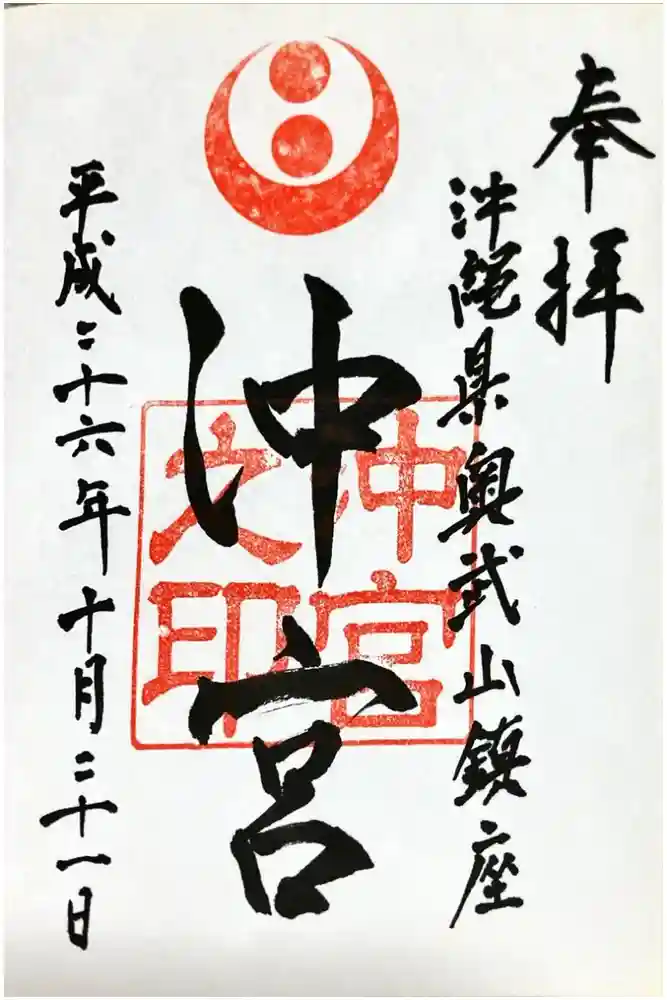 奉拝
沖縄県奥武山鎮座
沖宮
沖宮
之印
平成二十六年十月二十一日